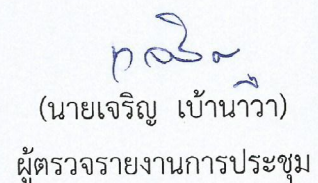 (นายเจริญ เบ้านาวา)
ผู้ตรวจรายงานการประชุม